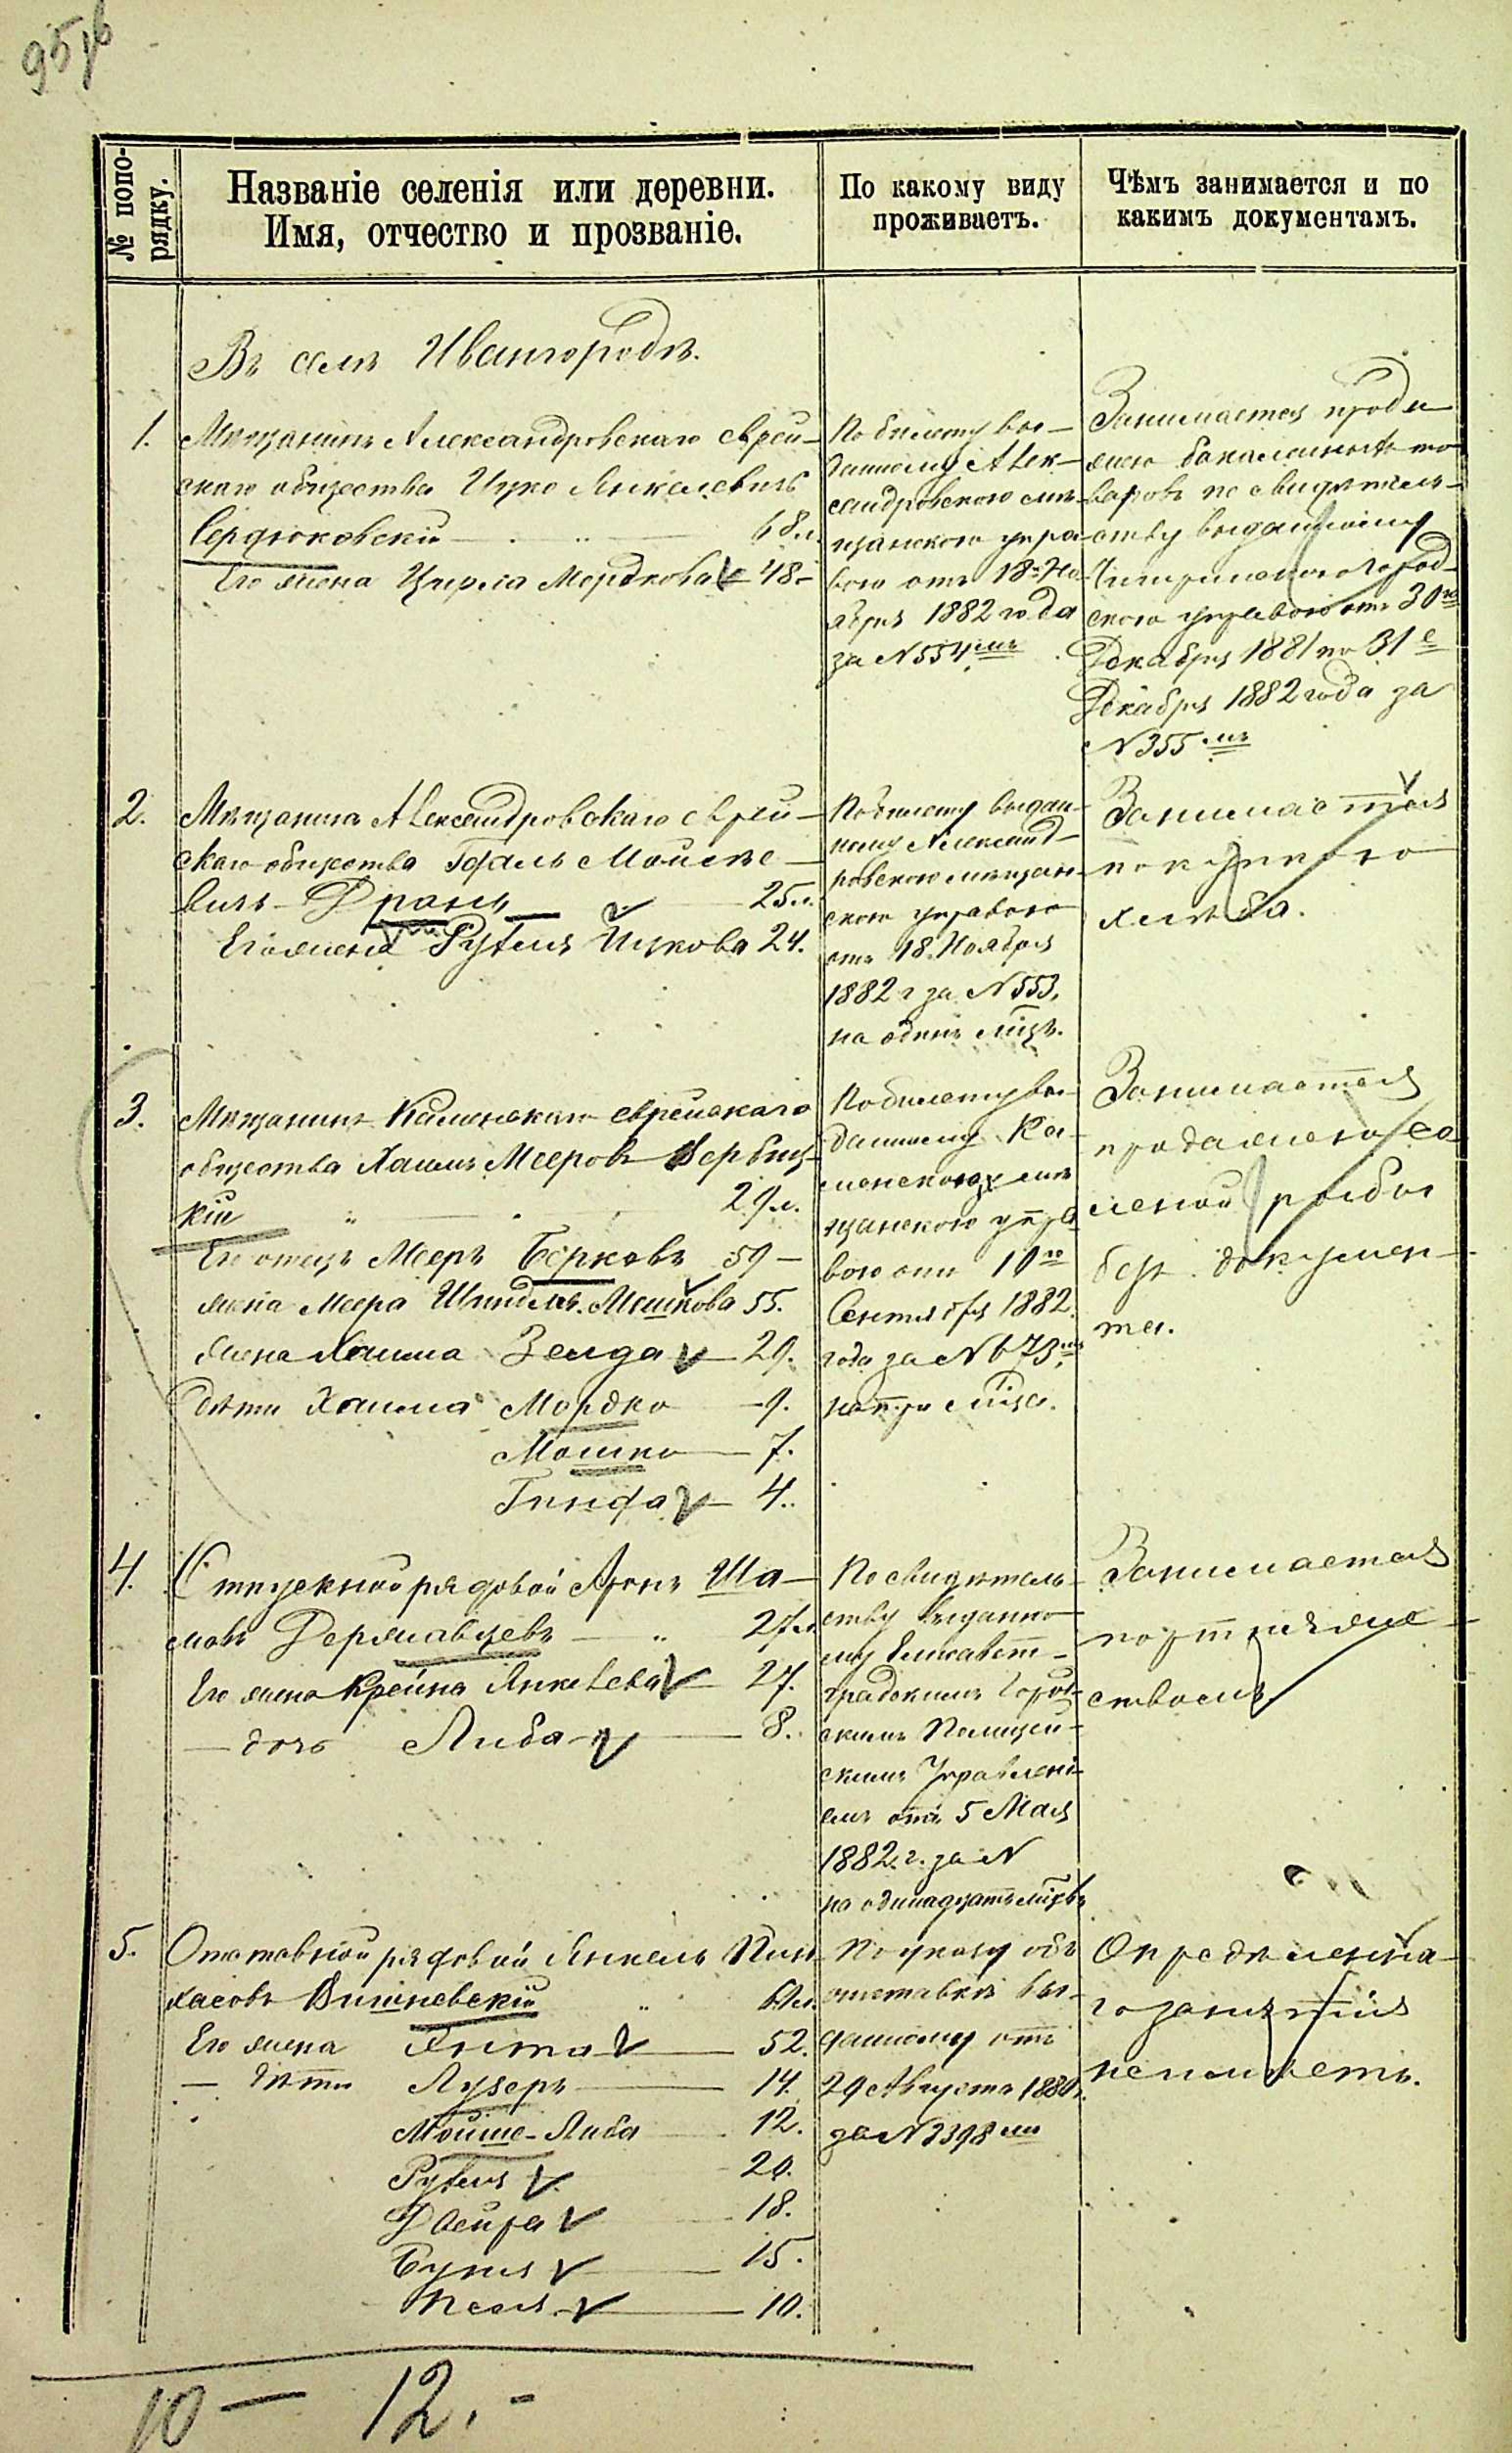 95 об
№ попо-
рядку.
Названіе селенія или деревни.
Имя, отчество и прозваніе.
По какому виду
проживаетъ.
Чѣмъ занимается и по
какимъ документамъ.
Въ селѣ Ивангородѣ.
1. Мѣщанинъ Александровскаго еврей-
скаго общества Ицко Янкелевичъ
Сердюковскій 68 л.
Его жена Цирля Мордкова 48
По билету вы-
данному Алек-
сандровскою мѣ-
щанскою упра-
вою отъ 18 Но-
ября 1882 года
за N 554мъ
Занимается прода-
жею бакалейныхъ то-
варовъ по свидѣтель-
ству выданному
Чигиринскою Город-
скою управою отъ 30го
Декабря 1881 по 31е
Декабря 1882 года за
N 355мъ
2. Мѣщанинъ Александровскаго еврей-
скаго общества Гдаль Мойсее-
вичъ 25 л.
Его жена Рухля Ицкова 24.
По билету выдан-
ному Александ-
ровскою мѣщан-
скою управою
отъ 18 Ноября
1882 г за N 553,
на одинъ мѣцъ.
Занимается
покупкою
хлѣба.
3. Мѣщанинъ Каменскаго еврейскаго
общества Хаимъ Мееровъ Вербиц-
кій 29 л.
Его отецъ Мееръ Берковъ 59
жена Меера Шиндля Мошкова 55.
жена Хаима Зелда 29.
дѣти Хаима Мордко 9.
Мошко 7.
Гинда 4.
По билету вы-
данному Ка-
менскою мѣ
щанскою упра
вою отъ 10го
Сентября 1882
года за N 673мъ
на три мѣца.
Занимается
продажею со
леной рыбы
безъ докумен-
та.
4. Отпускной рядовой Аронъ Ша-
мовъ Державцевъ 27 л
Его жена Крейна Янкелева 27.
дочь Либа 8.
По свидѣтель-
ству выданно
му Елисавет-
градскимъ Город-
скимъ Полицей-
скимъ Управлені-
емъ отъ 5 Мая
1882 г. за N
на одинадцать мѣцевъ
Занимается
портняже-
ствомъ
5. Отставной рядовой Янкель Пин-
хасовъ Вишневскій
Его жена Янта 52.
дѣти Лузеръ 14.
Мойше-Либа 12.
Рухля 20.
Двейра 18.
Бруня 15.
Песя 10.
По указу объ
отставкѣ вы-
данному отъ
29 Августа 1880 г.
за N 2398мъ
Опредѣленна-
го занятія
не имѣетъ.
10 — 12.-